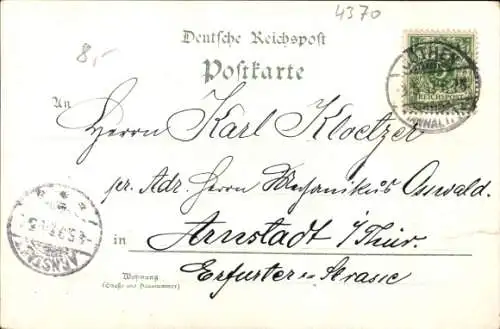 4370
8,-
Deutsche Reichspost
Postkarte
An
Herrn Karl Kloetzer
pr. Adr. Herrn Mechanikus Oswald.
in Arnstadt i/Thür.
Erfurter Strasse
Wohnung
(Straße und Hausnummer)
CÖTHEN
(ANHALT)
REICHSPOST
ARNSTADT